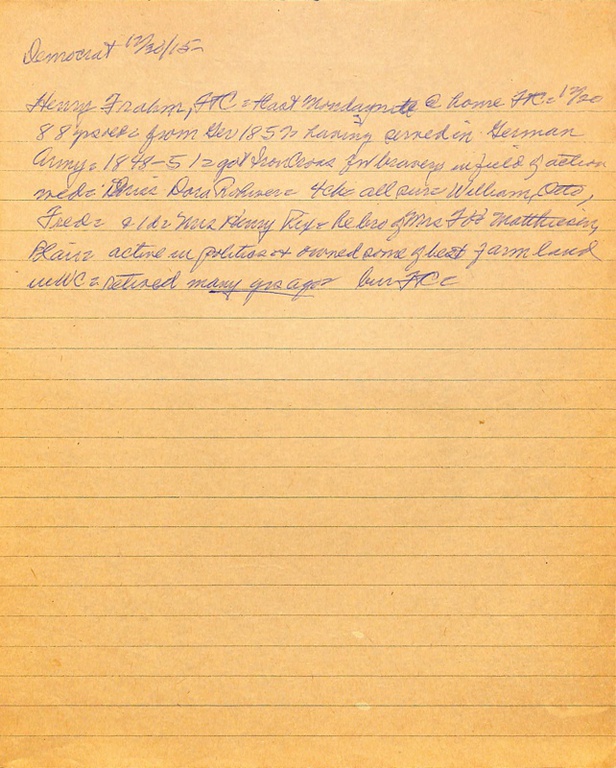 Democrat 12/30/15-
Henry Frahm, FTC = last Monday nite @ home FTC = 12/20
88 yrs = from Ger 1852 having served in German
Army = 1848-51 = got Iron Cross for bravery in field of action
Miss Dora = 4 ch all sur = William, Otto,
Fred = & 1 d = Mrs Henry bro of Mrs Matthiesen,
Blair = active in politics & owned some of best farm land
in WC = retired many yrs ago bur FTC